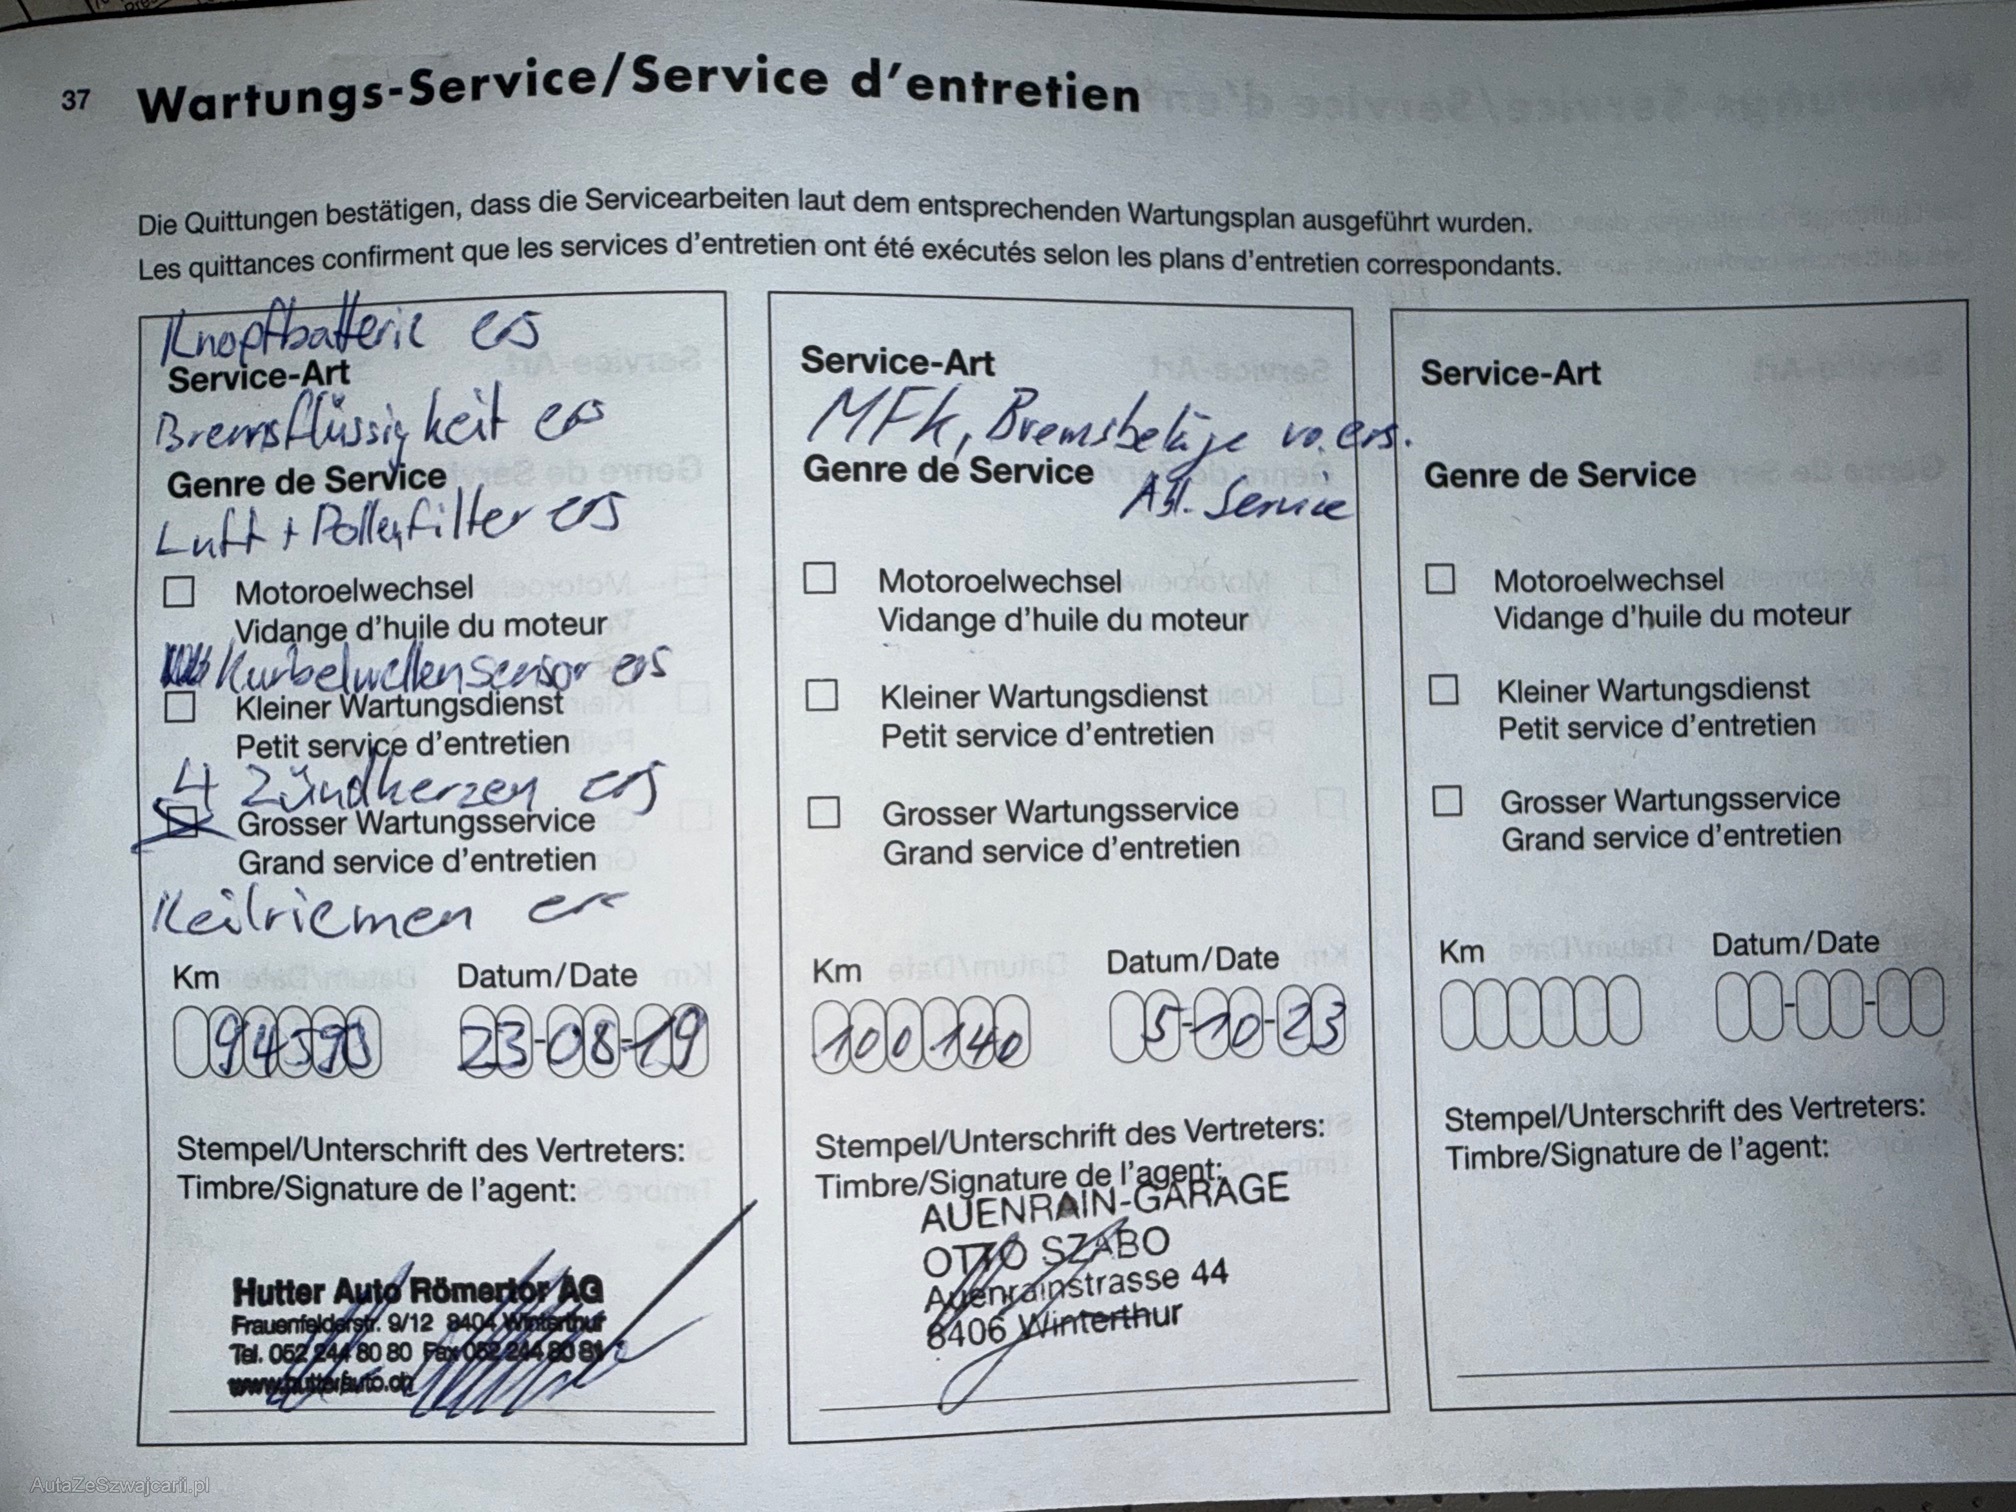 37 Wartungs-Service/Service d'entretien
Die Quittungen bestätigen, dass die Servicearbeiten laut dem entsprechenden Wartungsplan ausgeführt wurden.
Les quittances confirment que les services d'entretien ont été exécutés selon les plans d'entretien correspondants.
Knopfbatterie ers
Service-Art
Bremsflüssigkeit ers
Genre de Service
Luft + Pollenfilter ers
Motoroelwechsel
Vidange d'huile du moteur
Kurbelwellensensor ers
Kleiner Wartungsdienst
Petit service d'entretien
4 Zündkerzen ers
Grosser Wartungsservice
Grand service d'entretien
Keilriemen ers
Km Datum/Date
94590 23-08-19
Stempel/Unterschrift des Vertreters:
Timbre/Signature de l'agent:
Hutter Auto Römertor AG
Frauenfelderstr. 9/12 8404 Winterthur
Tel. 052 244 80 80 Fax 052 244 80 81
www.hutterauto.ch
Service-Art
MFK, Bremsbeläge vo. ers.
Genre de Service
Service
Motoroelwechsel
Vidange d'huile du moteur
Kleiner Wartungsdienst
Petit service d'entretien
Grosser Wartungsservice
Grand service d'entretien
Km Datum/Date
100140 5-10-23
Stempel/Unterschrift des Vertreters:
Timbre/Signature de l'agent:
AUENRAIN-GARAGE
OTTO SZABO
Auenrainstrasse 44
8406 Winterthur
Service-Art
Genre de Service
Motoroelwechsel
Vidange d'huile du moteur
Kleiner Wartungsdienst
Petit service d'entretien
Grosser Wartungsservice
Grand service d'entretien
Km Datum/Date
Stempel/Unterschrift des Vertreters:
Timbre/Signature de l'agent:
AutaZeSzwajcarii.pl